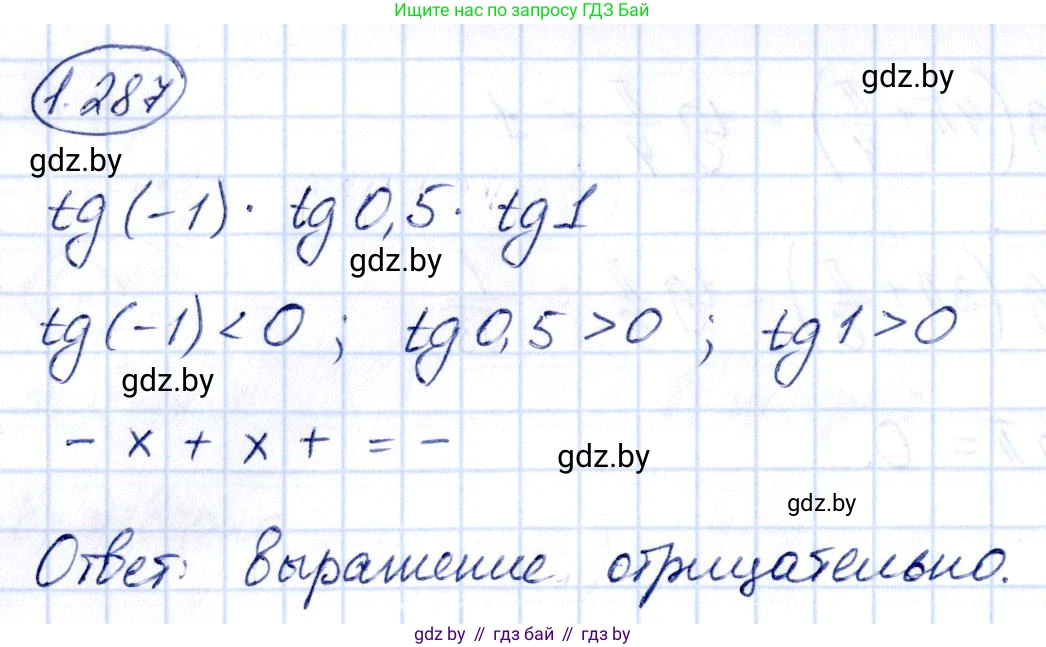 Ищите нас по запросу ГДЗ Бай
1.287
gdz.by
gdz.by
tg(-1) · tg 0,5 · tg 1
gdz.by
tg(-1) < 0 ; tg 0,5 > 0 ; tg 1 > 0
gdz.by
- x + x + = -
gdz.by
gdz.by
Ответ: выражение отрицательно.
gdz by // гдз бай // гдз by